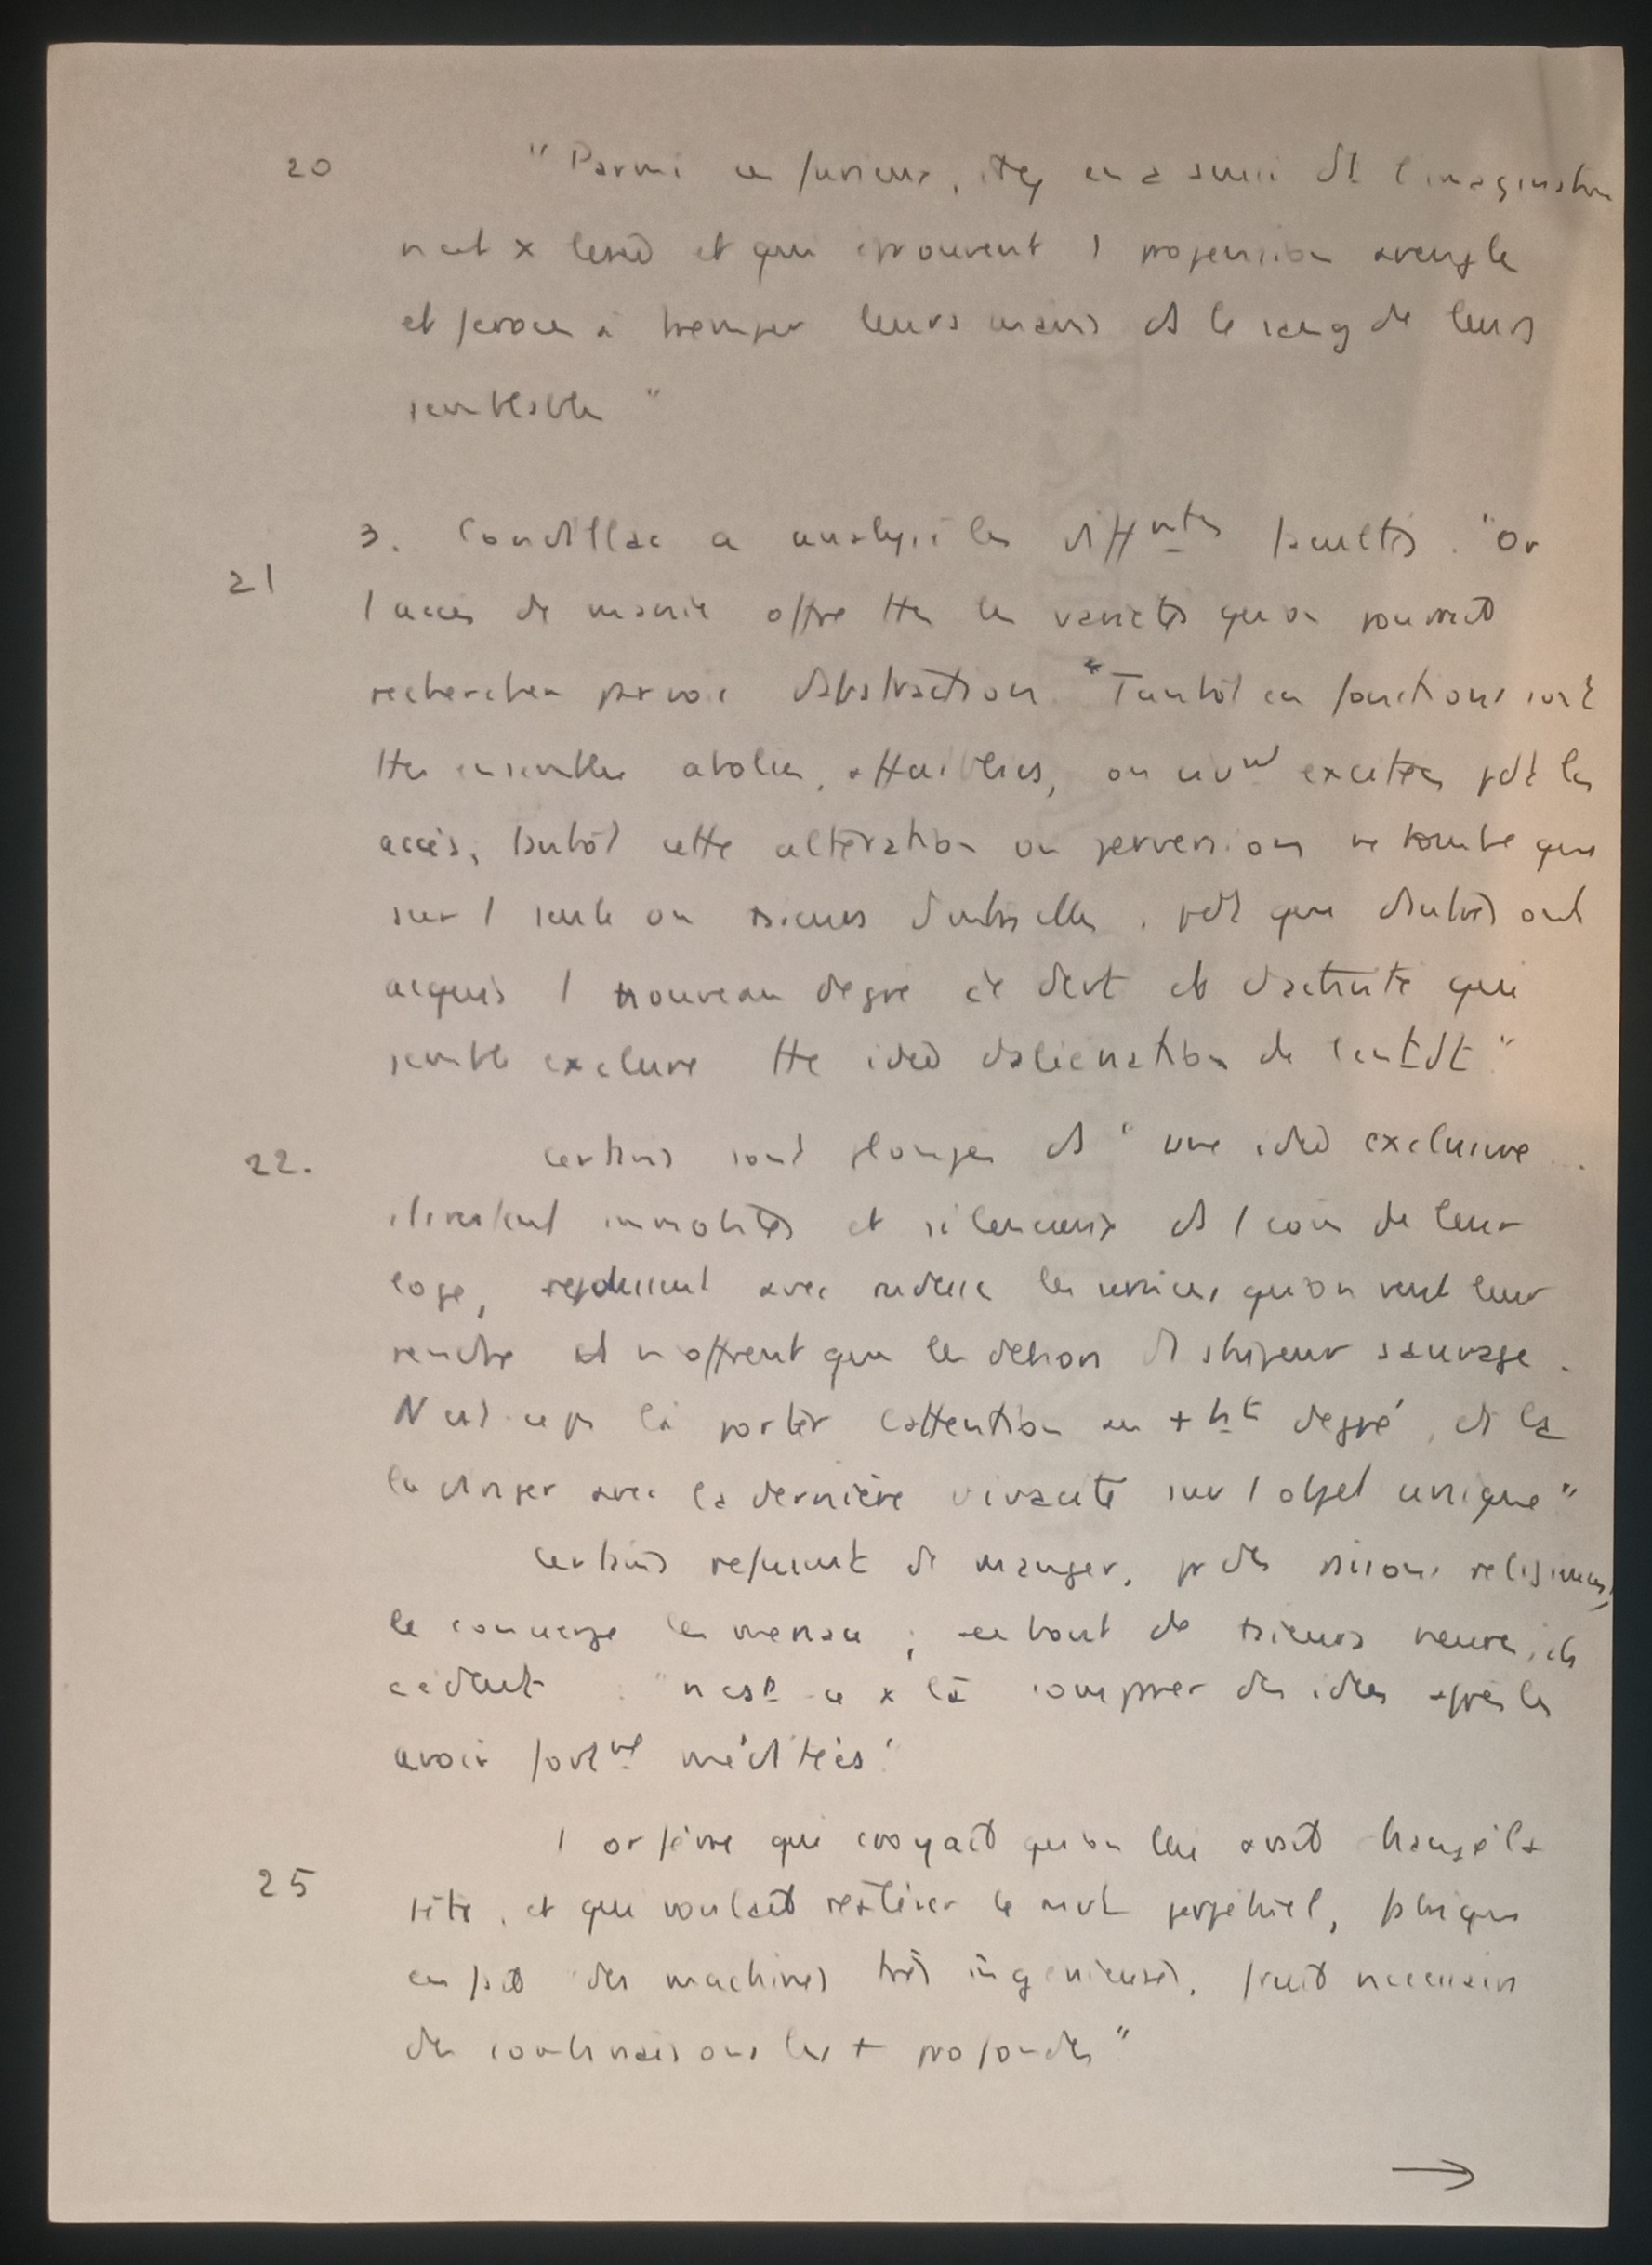 20 "Parmi ces furieux, il y en a aussi dt l'imagination
n'est x lésée et qui éprouvent 1 propension aveugle
et féroce à tremper leurs mains ds le sang de leurs
semblables "
3. Condillac a analysé les difftes facultés. "Or
21 l'accès de manie offre ttes les variétés qu'on pourrait
rechercher par voie d'abstraction. "Tantôt ces fonctions sont
ttes ensembles abolies, affaiblies, ou vivt excitées pdt les
accès; tantôt cette altération ou perversion ne tombe que
sur 1 seule ou plusieurs d'entre elles, pdt que d'autres ont
acquis 1 nouveau degré de dvt et d'activité qui
semble exclure tte idée d'aliénation de l'entdt"
22. certains sont plongés ds "une idée exclusive ...
ils restent immobiles et silencieux ds 1 coin de leur
loge, repoussent avec rudesse les services qu'on veut leur
rendre et n'offrent que les dehors d stupeur sauvage.
N'est-ce ps là porter l'attention au + ht degré, et la
la diriger avec la dernière vivacité sur 1 objet unique"
Certains refusent de manger, pr des raisons religieuses,
le concierge les menace ; au bout de heures, ils
cèdent : "n'est-ce x là comparer des idées après les
avoir fortmt méditées"
1 orfèvre qui croyait qu'on lui avait changé la
25 tête, et qui voulait réaliser le mvt perpétuel, fabrique
en fait des machines très ingénieuses, fruit nécessaire
des combinaisons les + profondes"
→